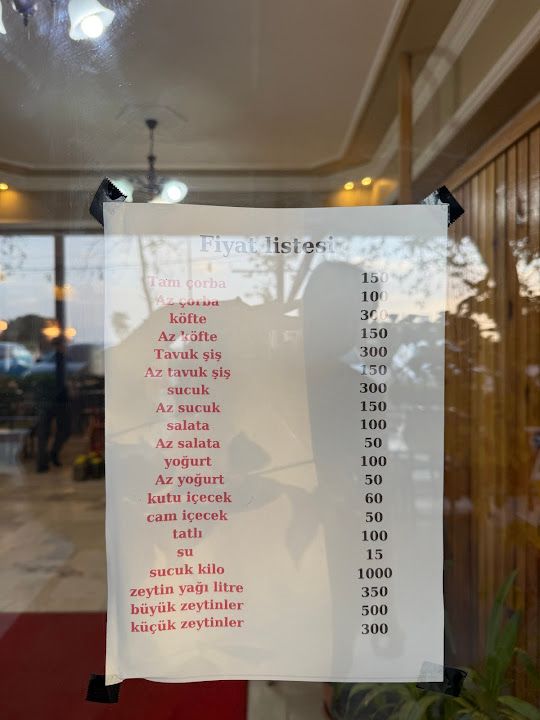 Fiyat listesi
Tam çorba 150
Az çorba 100
köfte 300
Az köfte 150
Tavuk şiş 300
Az tavuk şiş 150
sucuk 300
Az sucuk 150
salata 100
Az salata 50
yoğurt 100
Az yoğurt 50
kutu içecek 60
cam içecek 50
tatlı 100
su 15
sucuk kilo 1000
zeytin yağı litre 350
büyük zeytinler 500
küçük zeytinler 300